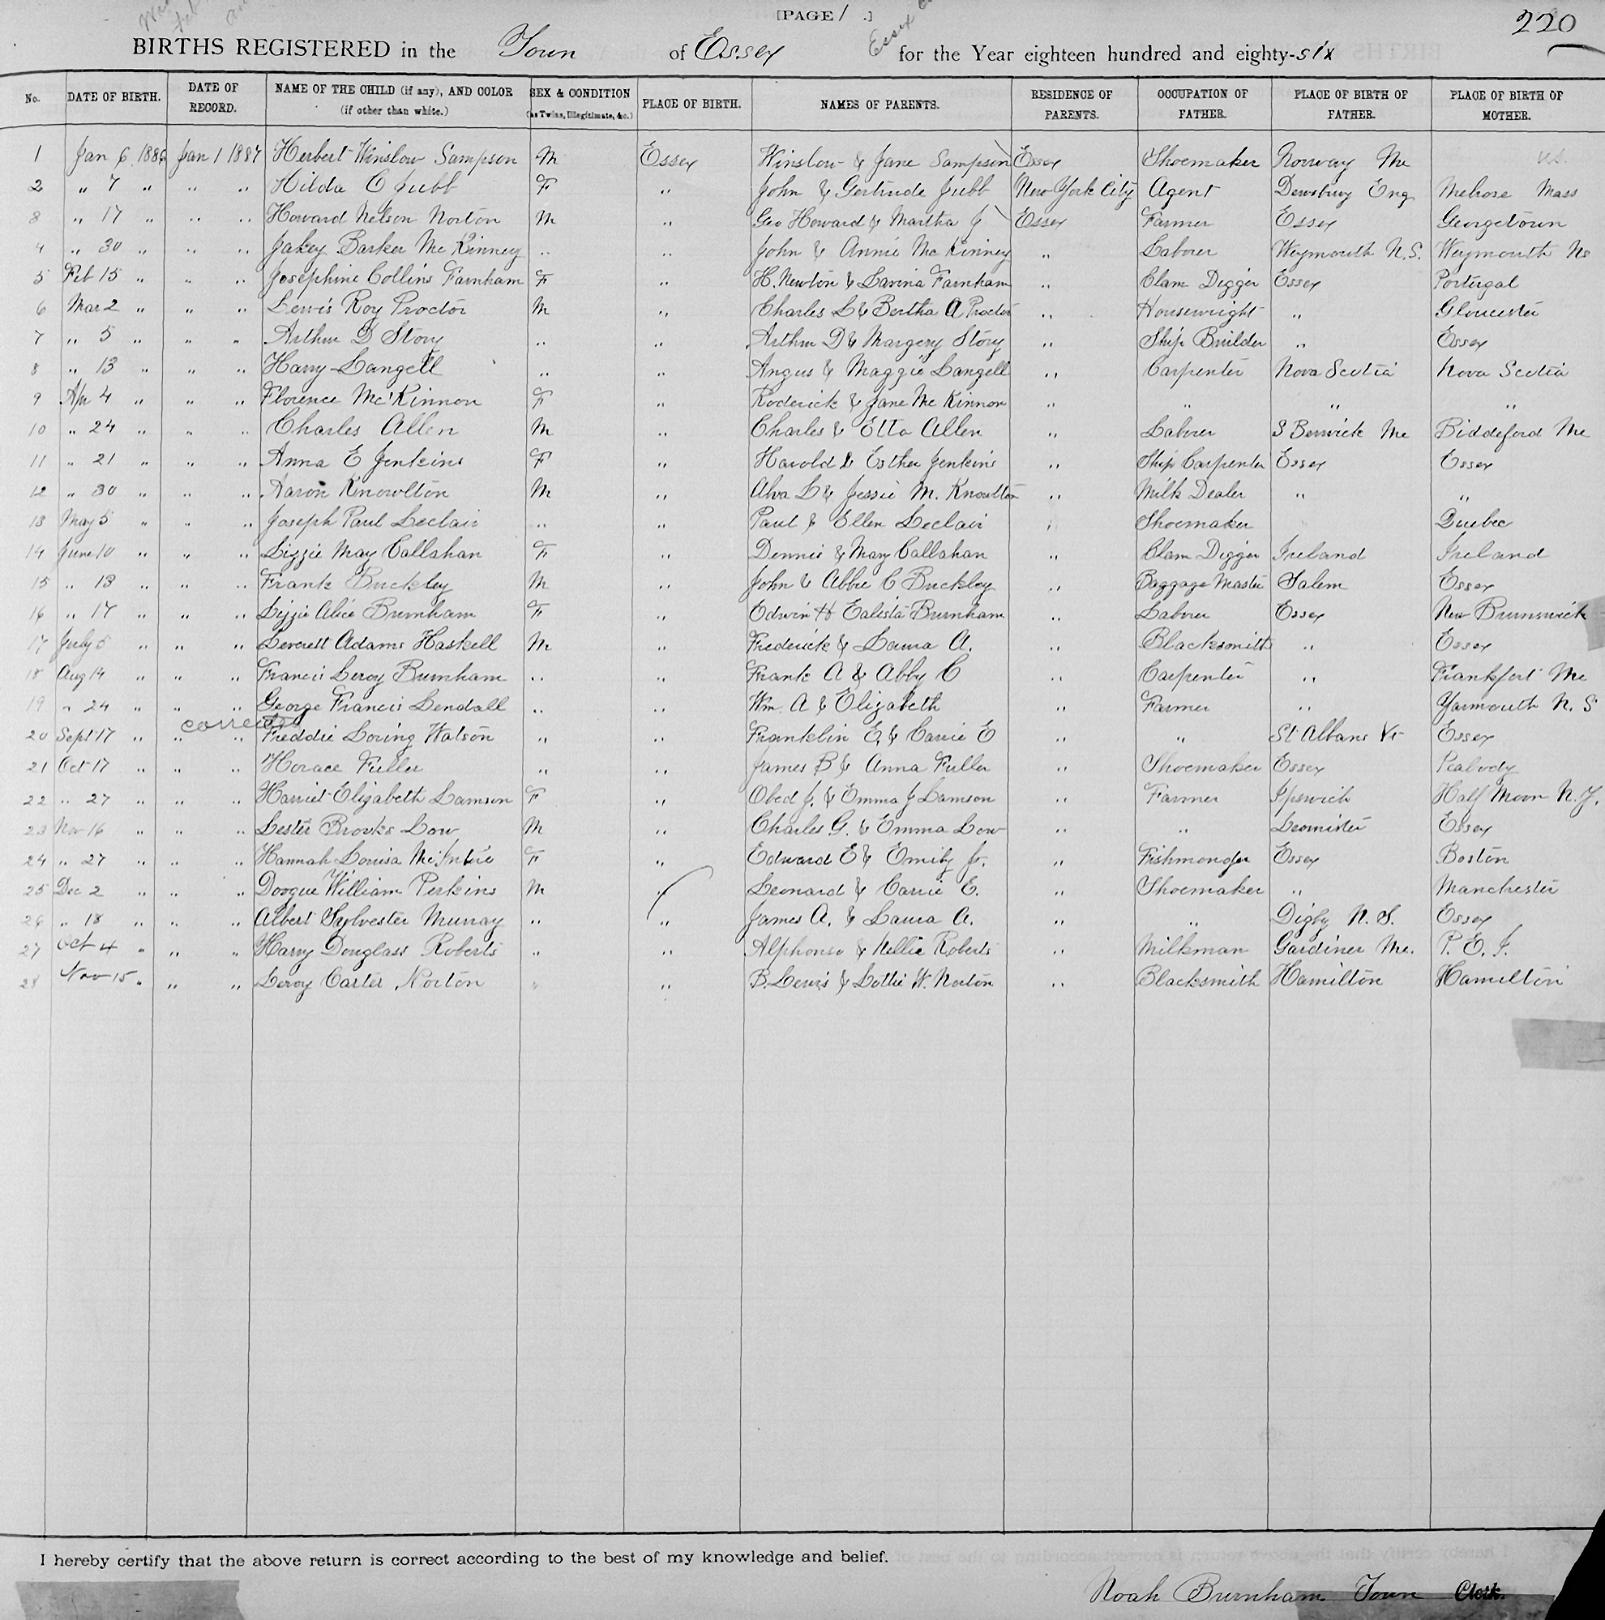 [PAGE 1 .]
220
BIRTHS REGISTERED in the Town of Essex for the Year eighteen hundred and eighty-six
No. DATE OF BIRTH. DATE OF RECORD. NAME OF THE CHILD (if any), AND COLOR (if other than white.) SEX & CONDITION (as Twins, Illegitimate, &c.) PLACE OF BIRTH. NAMES OF PARENTS. RESIDENCE OF PARENTS. OCCUPATION OF FATHER. PLACE OF BIRTH OF FATHER. PLACE OF BIRTH OF MOTHER.
1 Jan 6 1886 Jan 1 1887 Herbert Winslow Sampson M Essex Winslow & Jane Sampson Essex Shoemaker Norway Me
2 " 7 " " " Hilda C Jubb F " John & Gertrude Jubb New York City Agent Dewsbury Eng Melrose Mass
3 " 17 " " " Howard Nelson Norton M " Geo Howard & Martha J Essex Farmer Essex Georgetown
4 " 30 " " " Jakey Barker McKinney " " John & Annie McKinney " Laborer Weymouth N.S. Weymouth Ns
5 Feb 15 " " " Josephine Collins Farnham F " H. Newton & Lavina Farnham " Clam Digger Essex Portugal
6 Mar 2 " " " Lewis Roy Proctor M " Charles L & Bertha A Proctor " Housewright " Gloucester
7 " 5 " " " Arthur D Story " " Arthur D & Margery Story " Ship Builder " Essex
8 " 13 " " " Harry Langell " " Angus & Maggie Langell " Carpenter Nova Scotia Nova Scotia
9 Apr 4 " " " Florence McKinnon F " Roderick & Jane McKinnon " " " "
10 " 24 " " " Charles Allen M " Charles & Etta Allen " Laborer S Berwick Me Biddeford Me
11 " 21 " " " Anna E Jenkins F " Harold & Esther Jenkins " Ship Carpenter Essex Essex
12 " 30 " " " Aaron Knowlton M " Alva L & Jessie M. Knowlton " Milk Dealer " "
13 May 5 " " " Joseph Paul Leclair " " Paul & Ellen Leclair " Shoemaker Quebec
14 June 10 " " " Lizzie May Callahan F " Dennis & Mary Callahan " Clam Digger Ireland Ireland
15 " 13 " " " Frank Buckley M " John & Abbie C Buckley " Baggage Master Salem Essex
16 " 17 " " " Lizzie Alice Burnham F " Edwin H Ealista Burnham " Laborer Essex New Brunswick
17 July 5 " " " Leverett Adams Haskell M " Frederick & Laura A. " Blacksmith " Essex
18 Aug 14 " " " Francis Leroy Burnham " " Frank A & Abby C " Carpenter " Frankfort Me
19 " 24 " " " George Francis Lendall " " Wm. A & Elizabeth " Farmer " Yarmouth N.S
20 Sept 17 " " " Freddie Loring Watson " " Franklin E. & Carrie E " " St Albans Vt Essex
21 Oct 17 " " " Horace Fuller " " James B & Anna Fuller " Shoemaker Essex Peabody
22 " 27 " " " Harriet Elizabeth Lamson F " Obed J. & Emma J Lamson " Farmer Ipswich Half Moon N.Y.
23 Nov 16 " " " Lester Brooks Low M " Charles G. & Emma Low " " Leominster Essex
24 " 27 " " " Hannah Louisa McIntire F " Edward E & Emily J. " Fishmonger Essex Boston
25 Dec 2 " " " William Perkins M " Leonard & Carrie E. " Shoemaker " Manchester
26 " 18 " " " Albert Sylvester Murray " " James A. & Laura A. " " Digby N.S. Essex
27 Oct 4 " " " Harry Douglass Roberts " " Alphonso & Nellie Roberts " Milkman Gardiner Me. P.E.I.
28 Nov 15 " " " Leroy Carter Norton " " B. Lewis & Lottie W. Norton " Blacksmith Hamilton Hamilton
I hereby certify that the above return is correct according to the best of my knowledge and belief.
Noah Burnham Town Clerk.